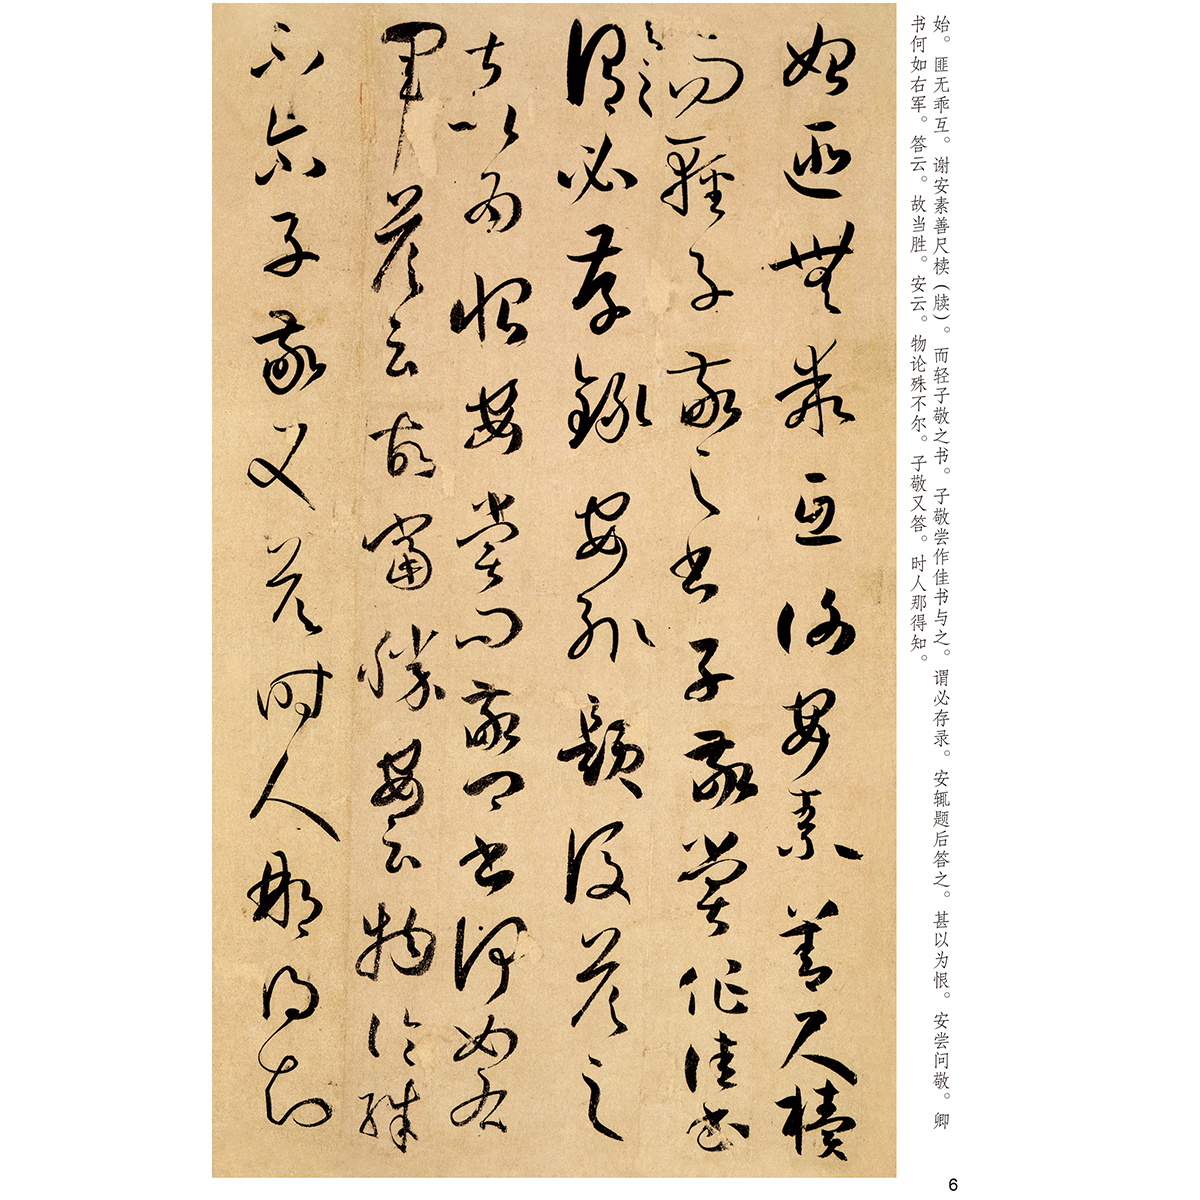 始。匪无乖互。谢安素善尺椟（牍）。而轻子敬之书。子敬尝作佳书与之。谓必存录。安辄题后答之。甚以为恨。安尝问敬。卿
书何如右军。答云。故当胜。安云。物论殊不尔。子敬又答。时人那得知。
始匪無乖互謝安素善尺櫝
而輕子敬之書子敬嘗作佳書
與之
謂必存錄安輒題後答之
甚以為恨安嘗問敬卿書何如右
軍答云故當勝安云物論殊
不尒子敬又答時人那得知
6